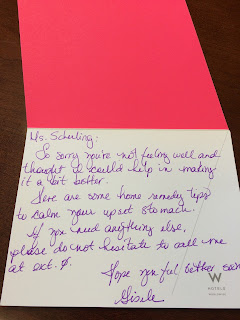 Ms. Scherling:
So sorry you're not feeling well and
thought I could help in making
it a bit better.
Here are some home remedy tips
to calm your upset stomach.
If you need anything else,
please do not hesitate to call me
at ext. 0.
Hope you feel better soon
Gisele
W
HOTELS